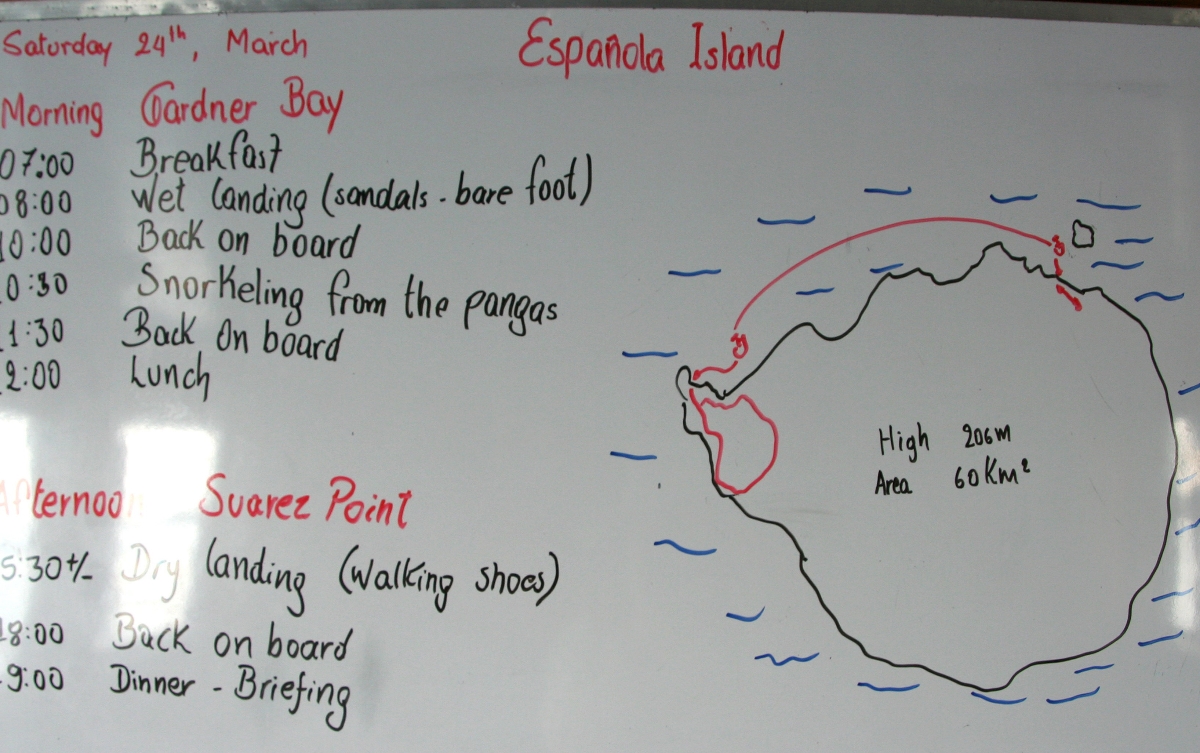 Saturday 24th, March
Española Island
Morning Gardner Bay
07:00 Breakfast
08:00 Wet landing (sandals - bare foot)
10:00 Back on board
0:30 Snorkeling from the pangas
1:30 Back On board
2:00 Lunch
High 206m
Area 60Km²
Afternoon Suarez Point
5:30+/- Dry landing (walking shoes)
18:00 Back on board
9:00 Dinner - Briefing